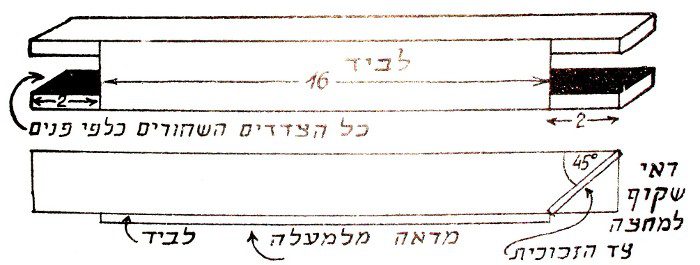 לביד
16
2
2
כל הצדדים השחורים כלפי פנים
45°
ראי
שקיף
למחצה
לביד
מראה מלמעלה
צד הזכוכית